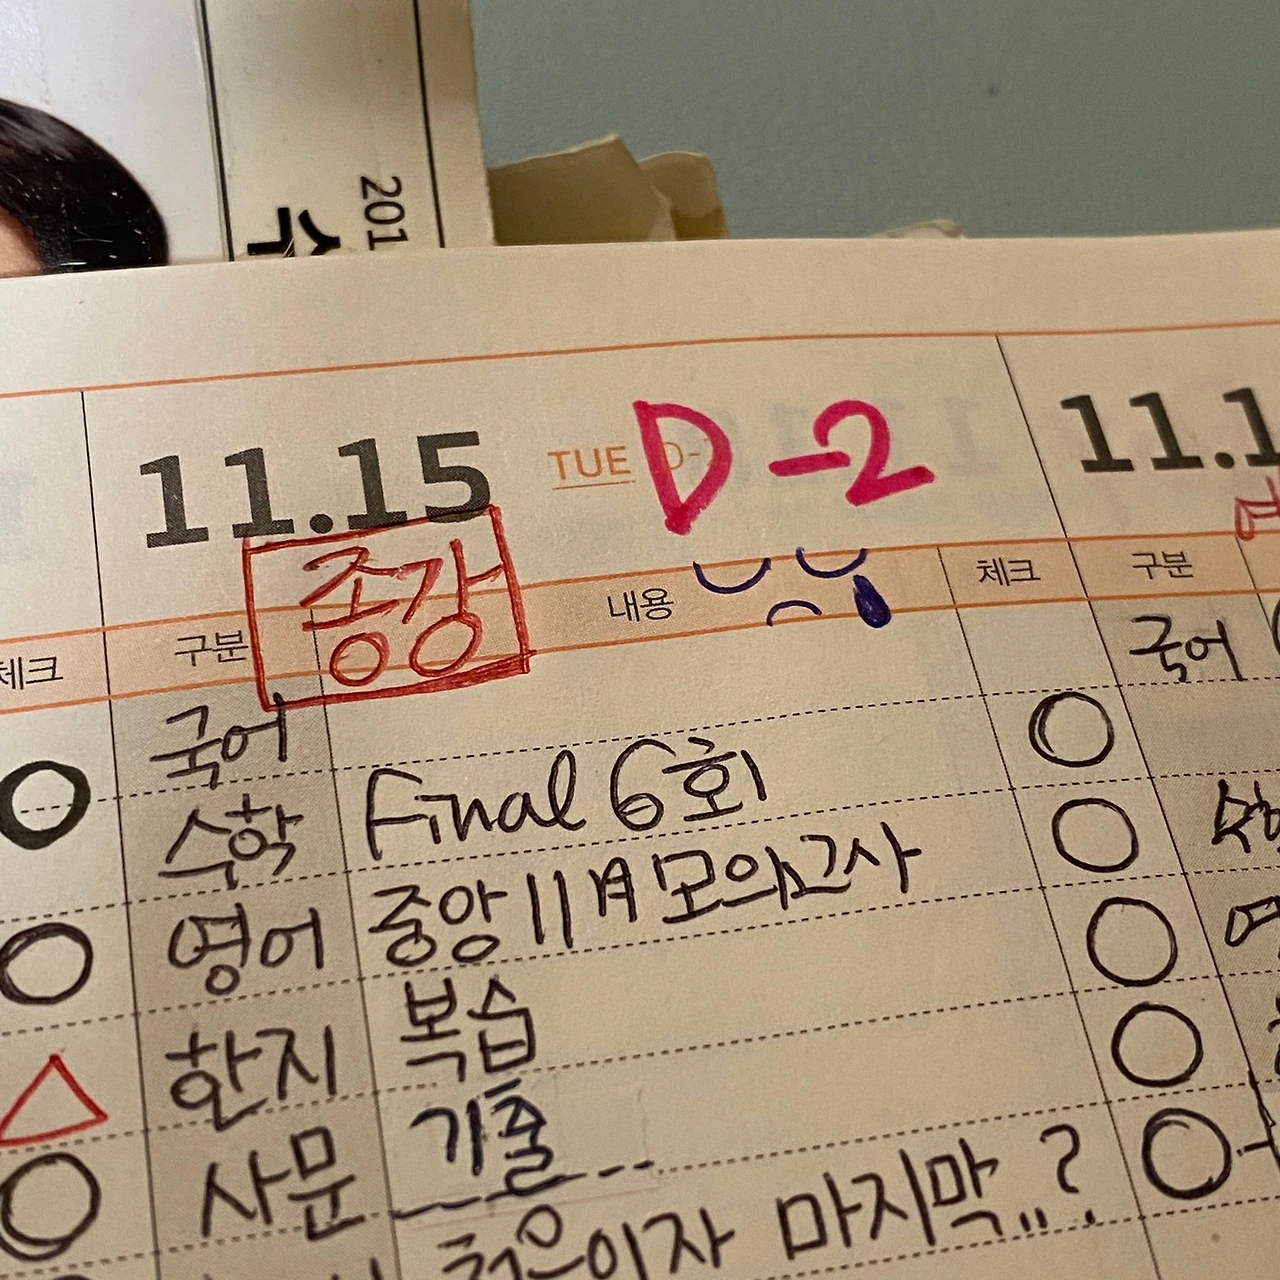 수
201
11.15 TUE D-2
종강
체크 구분 내용 체크 구분
국어 국어
수학 Final 6회
영어 중앙 11월 모의고사
한지 복습
사문 기출
처음이자 마지막..?